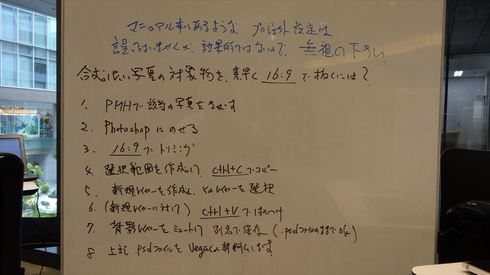 マニュアル本にあるような プロジェクト設定は
誤ってはいませんが、効果的ではないので、無視の下さい
合成したい写真の対象物を、素早く 16:9 で抜くには?
1. PMHで該当の写真をさがす
2. Photoshopにのせる
3. 16:9でトリミング
4. 選択範囲を作成して ctrl+Cでコピー
5. 新規レイヤーを作成し、レイヤーを選択
6. (新規レイヤーに対して) ctrl+Vではりつけ
7. 背景レイヤーをミュートして 別名で保存 (.psdファイルのままでOK)
8. 上記 .psdファイルをVegasの素材にします